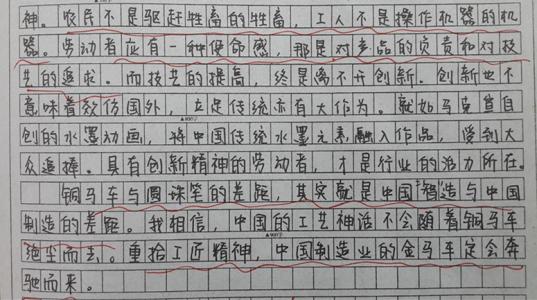 神。农民不是驱赶牲畜的牲畜，工人不是操作机器的机
器。劳动者应有一种使命感，那是对产品的负责和对技
艺的追求。而技艺的提高，终是离不开创新。创新也不
意味着效仿国外，立足传统亦有大作为。就如马克宣自
创的水墨动画，将中国传统水墨元素融入作品，受到大
众追捧。具有创新精神的劳动者，才是行业的活力所在。
铜马车与圆珠笔的差距，其实就是中国智造与中国
制造的差距。我相信，中国的工艺神话不会随着铜马车
绝尘而去。重拾工匠精神，中国制造业的金马车定会奔
驰而来。